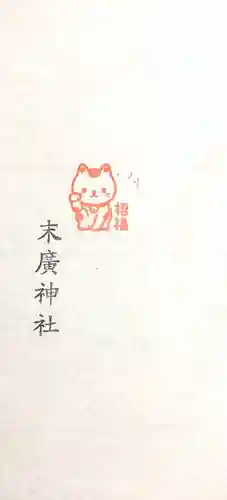 招福
末廣神社